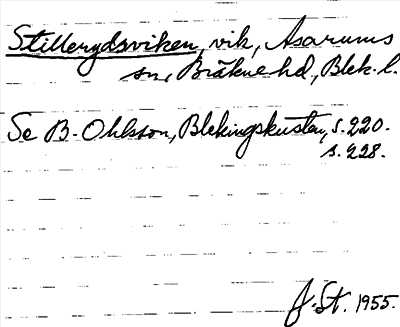 Stillerydsviken, vik, Asarums
sn, Bräkne hd, Blek. l.
Se B. Ohlsson, Blekingskusten, s. 220.
s. 228.
J. St. 1955.